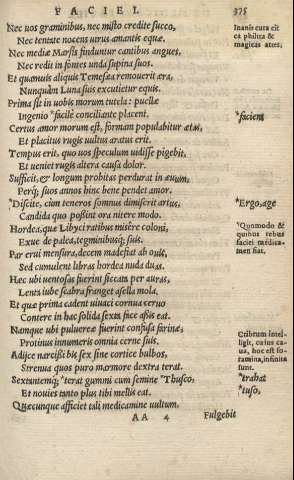 FACIEI. 375
Nec uos graminibus, nec misto credite succo,
Nec tentate nocens uirus amantis equæ.
Nec mediæ Marsis finduntur cantibus angues,
Nec redit in fontes unda supina suos.
Et quamuis aliquis Temesæa remouerit æra,
Nunquàm Luna suis excutietur equis.
Prima sit in uobis morum tutela: puellæ
Ingenio *facile conciliante placent.
Certus amor morum est, formam populabitur ætas,
Et placitus rugis uultus aratus erit.
Tempus erit, quo uos speculum uidisse pigebit,
Et ueniet rugis altera causa dolor.
Sufficit, & longum probitas perdurat in æuum,
Perq; suos annos hinc bene pendet amor.
*Discite, cùm teneros somnus dimiserit artus,
Candida quo possint ora nitere modo.
Hordea, quæ Libyci ratibus misêre coloni,
Exue de palea, tegminibusq; suis.
Par erui mensura, decem madefiat ab ouis,
Sed cumulent libras hordea nuda duas.
Hæc ubi uentosas fuerint siccata per auras,
Lenta iube scabra frangat asella mola,
Et quæ prima cadent uiuaci cornua ceruo
Contere in hæc solida sexta face aßis eat.
Namque ubi puluereæ fuerint confusa farinæ,
Protinus innumeris omnia cerne suis.
Adijce narcißi bis sex sine cortice bulbos,
Strenua quos puro marmore dextra terat.
Sextantemq; *terat gummi cum semine *Thusco,
Et nouies tanto plus tibi mellis eat.
Quæcunque afficiet tali medicamine uultum,
AA 4 Fulgebit
Inanis cura est
ea philtra &
magicas artes,
*facient
*Ergo, age
*Quomodo &
quibus rebus
faciei medica-
men fiat.
Cribrum intel-
ligit, cuius ca-
ua, hoc est fo-
ramina, infinita
sunt.
*trahat
*tuso,